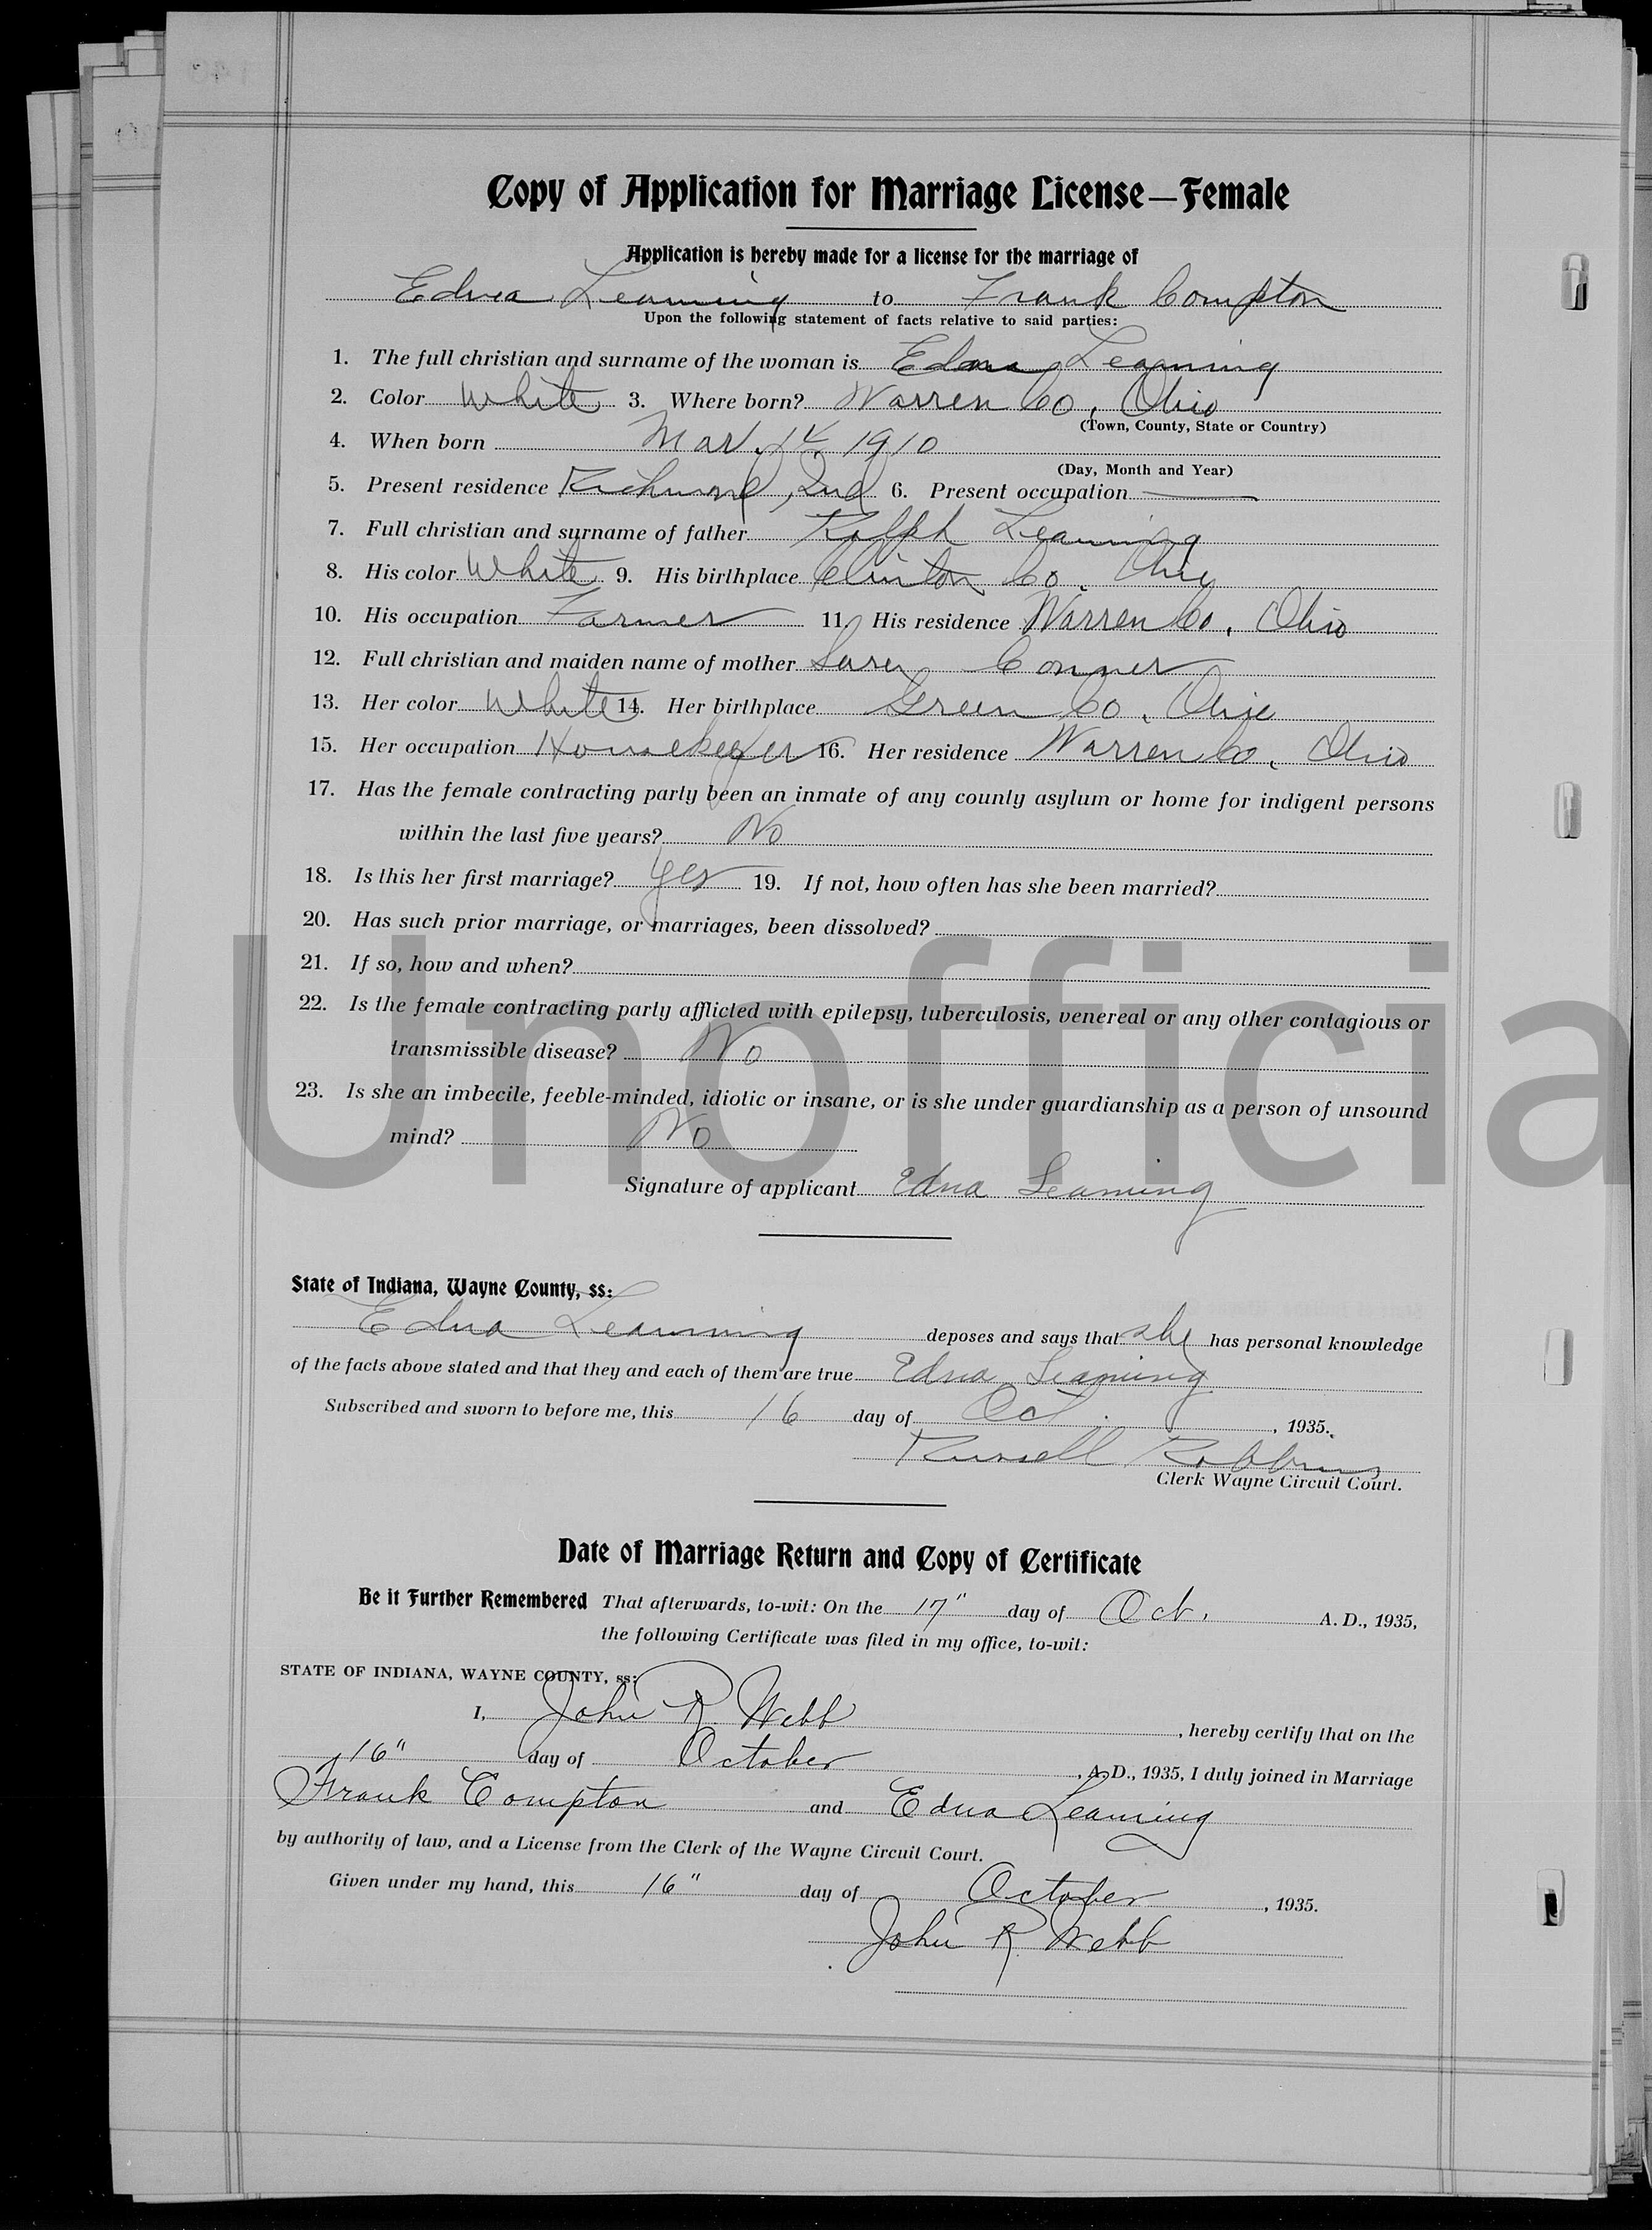 Copy of Application for Marriage License—Female
Application is hereby made for a license for the marriage of
Edna Leaming to Frank Compton
Upon the following statement of facts relative to said parties:
1. The full christian and surname of the woman is Edna Leaming
2. Color White 3. Where born? Warren Co, Ohio
(Town, County, State or Country)
4. When born Mar. 1910
(Day, Month and Year)
5. Present residence Richmond, Ind 6. Present occupation —
7. Full christian and surname of father Ralph Leaming
8. His color White 9. His birthplace Clinton Co. Ohio
10. His occupation Farmer 11. His residence Warren Co, Ohio
12. Full christian and maiden name of mother Conner
13. Her color White 14. Her birthplace Green Co, Ohio
15. Her occupation Housekeeper 16. Her residence Warren Co, Ohio
17. Has the female contracting party been an inmate of any county asylum or home for indigent persons
within the last five years? No
18. Is this her first marriage? Yes 19. If not, how often has she been married?
20. Has such prior marriage, or marriages, been dissolved?
21. If so, how and when?
Unofficia
22. Is the female contracting party afflicted with epilepsy, tuberculosis, venereal or any other contagious or
transmissible disease? No
23. Is she an imbecile, feeble-minded, idiotic or insane, or is she under guardianship as a person of unsound
mind? No
Signature of applicant Edna Leaming
State of Indiana, Wayne County, ss:
Edna Leaming deposes and says that she has personal knowledge
of the facts above stated and that they and each of them are true Edna Leaming
Subscribed and sworn to before me, this 16 day of Oct. , 1935.
Russell Robbins
Clerk Wayne Circuit Court.
Date of Marriage Return and Copy of Certificate
Be it Further Remembered That afterwards, to-wit: On the 17" day of Oct. A. D., 1935,
the following Certificate was filed in my office, to-wit:
STATE OF INDIANA, WAYNE COUNTY, ss:
I, John R. Webb , hereby certify that on the
16" day of October , A. D., 1935, I duly joined in Marriage
Frank Compton and Edna Leaming
by authority of law, and a License from the Clerk of the Wayne Circuit Court.
Given under my hand, this 16" day of October , 1935.
John R. Webb